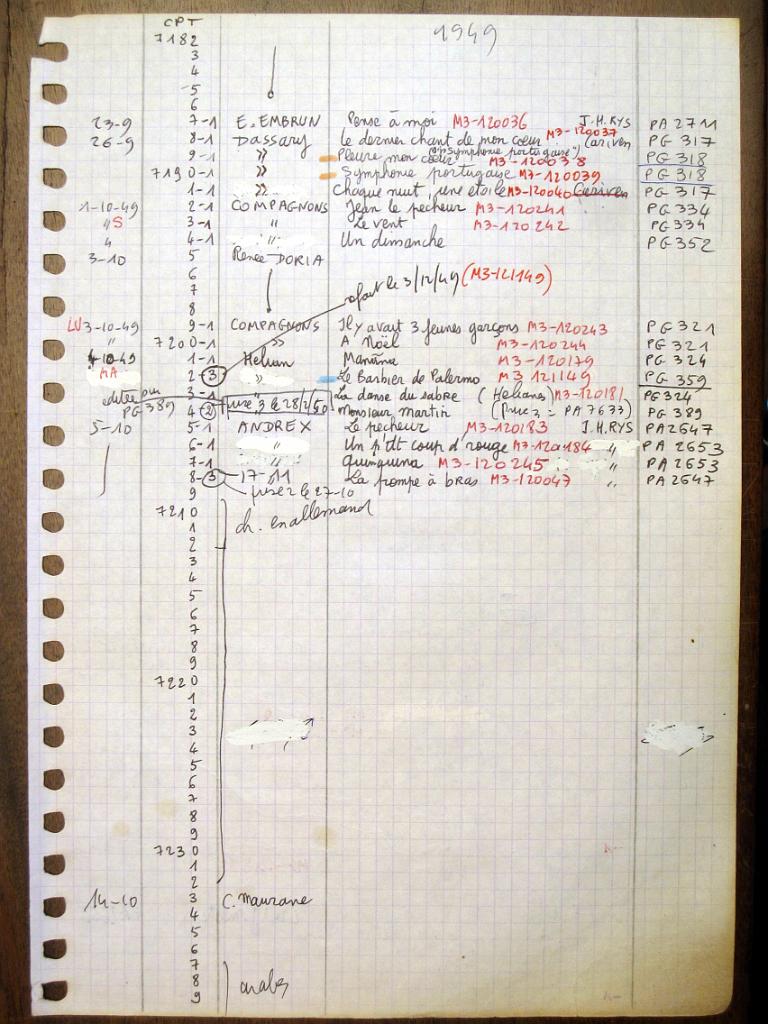 CPT 1949
7182
3
4
5
6
23-9 7-1 E. EMBRUN Pense à moi M3-120036 J.H.RYS PA 2711
26-9 8-1 Dassary Le dernier chant de mon cœur M3-120037 Cariven PG 317
9-1 " Pleure mon cœur (en "Symphonie portugaise") M3-120038 PG 318
7190-1 " Symphonie portugaise M3-120039 PG 318
1-1 " Chaque nuit, une étoile M3-120040 Cariven PG 317
1-10-49 2-1 COMPAGNONS Jean le pêcheur M3-120241 PG 334
" S 3-1 " Le vent M3-120242 PG 334
" 4-1 " Un dimanche PG 352
3-10 5 Renée DORIA
6
7 afait le 3/12/49 (M3-121149)
8
LU 3-10-49 9-1 COMPAGNONS Il y avait 3 jeunes garçons M3-120243 PG 321
" 7200-1 " A Noël M3-120244 PG 321
4-10-49 1-1 Hélian Manana M3-120179 PG 324
MA 2-3 " Le Barbier de Palermo M3 121149 PG 359
éditée sur PG 389 3-1 " La danse du sabre (Hélianes) M3-120181 PG 324
4-2 prise 3 le 28/2/50 Monsieur martin (prise 2 = PA 7633) PG 389
5-10 5-1 ANDREX Le pêcheur M3-120183 J.H.RYS PA 2647
6-1 " Un p'tit coup d'rouge M3-120184 " PA 2653
7-1 " Quinquina M3-120245 " PA 2653
8-3 17-11 La pompe à bras M3-120047 " PA 2647
9 prise 2 le 27-10
7210 ch. en allemand
1
2
3
4
5
6
7
8
9
7220
1
2
3
4
5
6
7
8
9
7230
1
2
14-10 3 C. Maurane
4
5
6
7
8 arabes
9